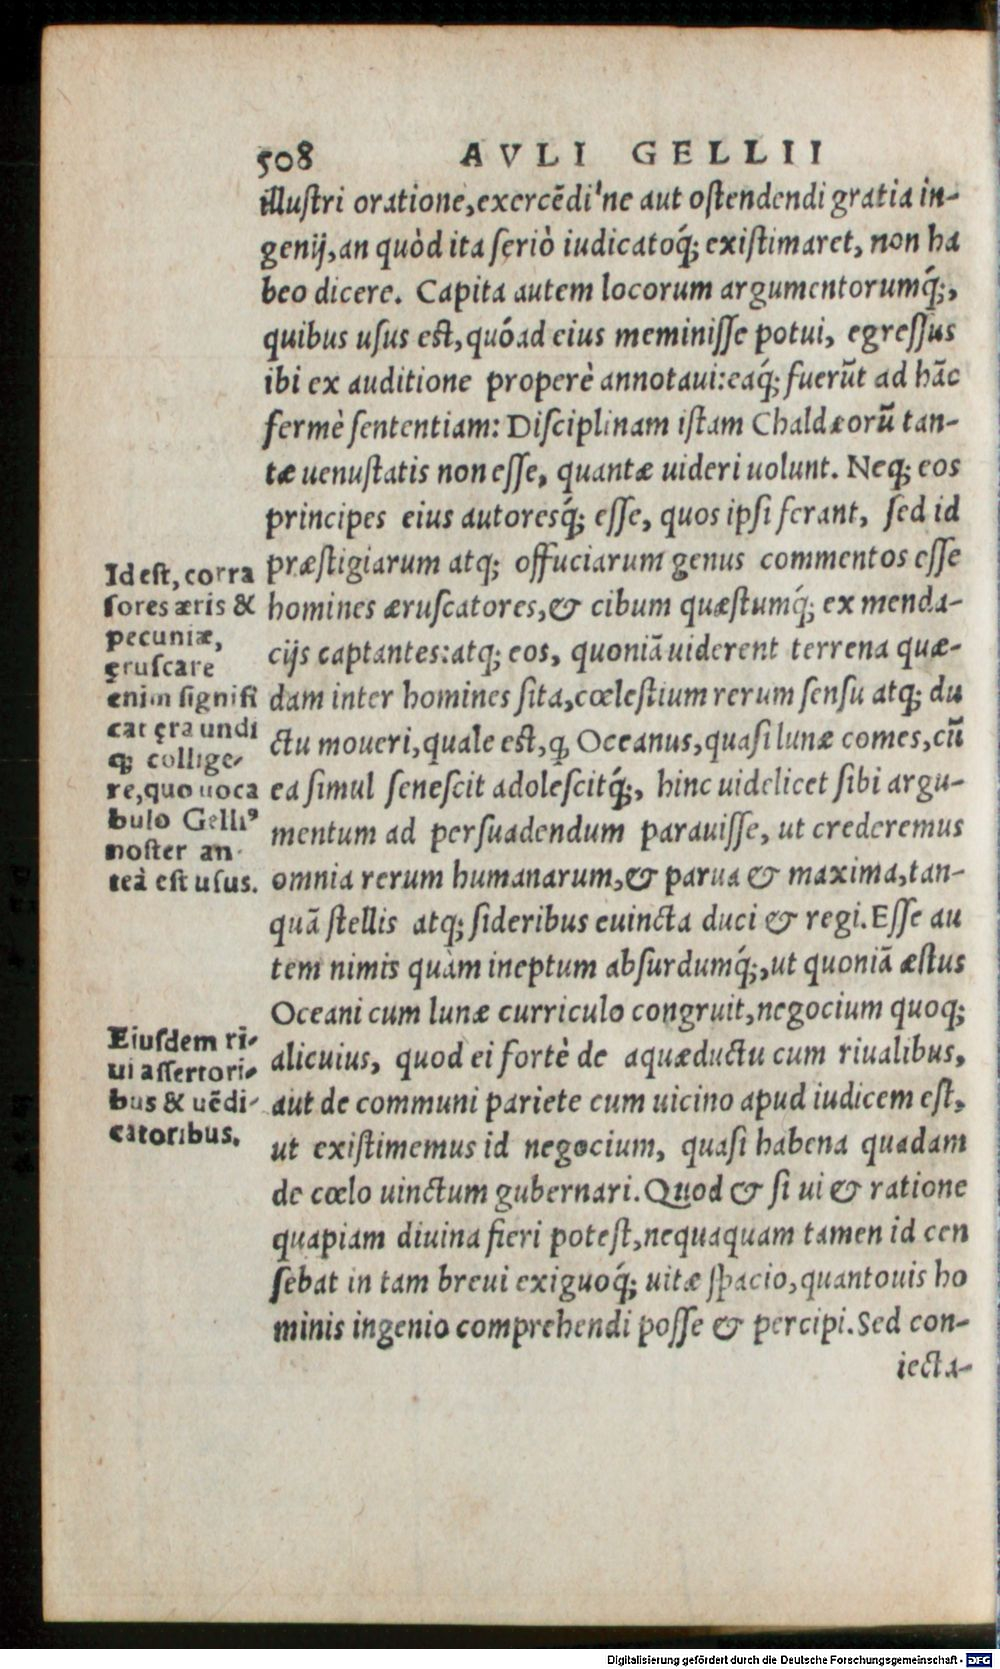 508 AVLI GELLII
illuſtri oratione, exercẽdi'ne aut oſtendendi gratia in-
genij, an quòd ita ſeriò iudicatoq́; exiſtimaret, non ha
beo dicere. Capita autem locorum argumentorumq́;,
quibus uſus eſt, quóad eius meminiſſe potui, egreſſus
ibi ex auditione properè annotaui: eaq́; fuerũt ad hãc
fermè ſententiam: Diſciplinam iſtam Chaldæorũ tan-
tæ uenuſtatis non eſſe, quantæ uideri uolunt. Neq; eos
principes eius autoresq́; eſſe, quos ipſi ferant, ſed id
præſtigiarum atq; offuciarum genus commentos eſſe
homines æruſcatores, & cibum quæſtumq́; ex menda-
cijs captantes: atq; eos, quoniã uiderent terrena quæ-
dam inter homines ſita, cœleſtium rerum ſenſu atq; du
ctu moueri, quale eſt, ꝙ Oceanus, quaſi lunæ comes, cũ
ea ſimul ſeneſcit adoleſcitq́;, hinc uidelicet ſibi argu-
mentum ad perſuadendum parauiſſe, ut crederemus
omnia rerum humanarum, & parua & maxima, tan-
quã ſtellis atq; ſideribus euincta duci & regi. Eſſe au
tem nimis quàm ineptum abſurdumq́;, ut quoniã æſtus
Oceani cum lunæ curriculo congruit, negocium quoq;
alicuius, quod ei fortè de aquæductu cum riualibus,
aut de communi pariete cum uicino apud iudicem eſt,
ut exiſtimemus id negocium, quaſi habena quadam
de cœlo uinctum gubernari. Quod & ſi ui & ratione
quapiam diuina fieri poteſt, nequaquam tamen id cen
ſebat in tam breui exiguoq́; uitæ ſpacio, quantouis ho
minis ingenio comprehendi poſſe & percipi. Sed con-
iecta-
Id eſt, corra
ſores æris &
pecuniæ,
ęruſcare
enim ſignifi
cat ęra undi
q; collige-
re, quo uoca
bulo Gelliꝰ
noſter an-
teà eſt uſus.
Eiuſdem ri-
ui aſſertori-
bus & uẽdi-
catoribus.
Digitalisierung gefördert durch die Deutsche Forschungsgemeinschaft - DFG